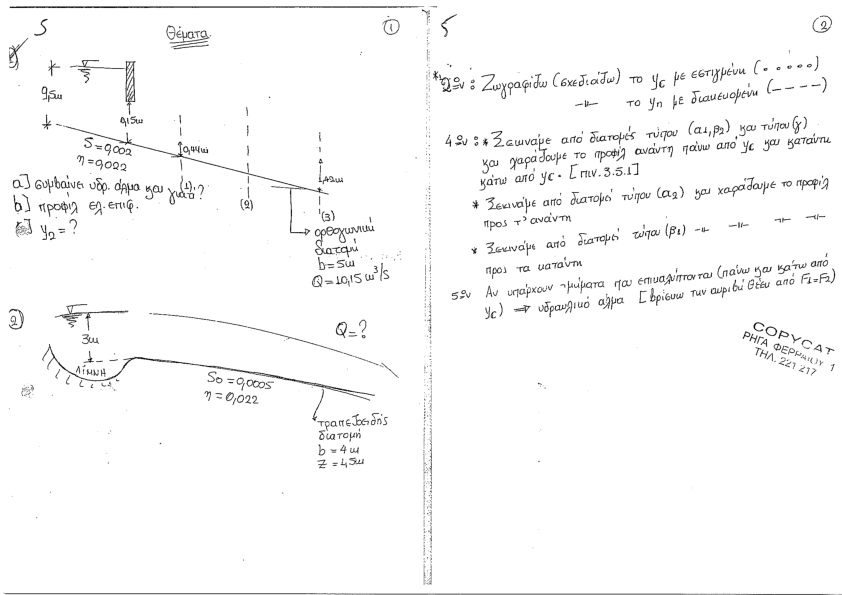 5
Θέματα
1
9,5m
0,15m
S = 0,002
η = 0,022
0,44m
1,42m
(1)
(2)
(3)
a] συμβαίνει υδρ. άλμα και γιατί?
b] προφίλ ελ. επιφ.
y₂ = ?
ορθογωνική
διατομή
b = 5m
Q = 10,15 m³/s
2
3m
Q = ?
ΛΙΜΝΗ
S₀ = 0,0005
η = 0,022
τραπεζοειδής
διατομή
b = 4m
5
2
Ζωγραφίζω (σχεδιάζω) το yc με εστιγμένη (• • • • •)
—〃— το yn με διακεκομένη (– – – –)
4ον : * Ξεκινάμε από διατομές τύπου (α1,β2) και τύπου (γ)
και χαράζουμε το προφίλ ανάντη πάνω από yc και κατάντη
κάτω από yc. [πιν. 3.5.1]
* Ξεκινάμε από διατομεί τύπου (α2) και χαράζουμε το προφίλ
προς τ' ανάντη
* Ξεκινάμε από διατομεί τύπου (β1) —〃— —〃— —〃— —〃—
προς τα κατάντη
5ον Αν υπάρχουν τμήματα που επικαλύπτονται (πάνω και κάτω από
yc) ⇒ υδραυλικό άλμα [βρίσκω την ακριβή θέση από F1=F2)
COPYCAT
ΡΗΓΑ ΦΕΡΑΙΟΥ 1
ΤΗΛ. 221 217